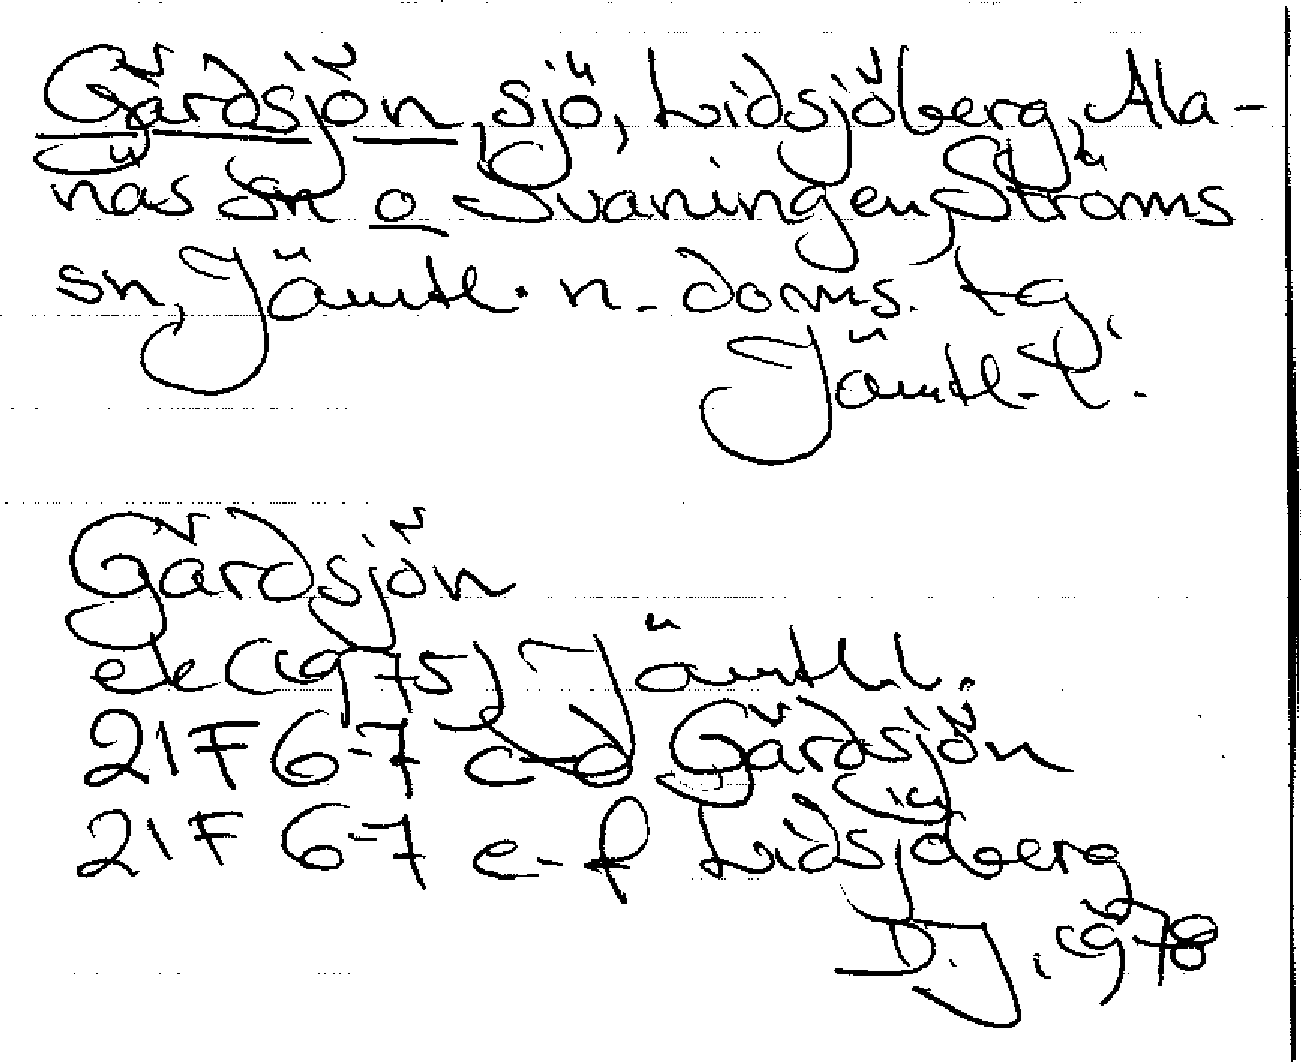 Gårdsjön, sjö, Lidsjöberg, Ala-
näs sn o Svaningen, Ströms
sn, Jämtl. n. doms. tg
Jämtl. l.
Gårdsjön
ek (1975) Jämtl. l.
21F 6-7 c-d Gårdsjön
21F 6-7 e-f Lidsjöberg
D.J. 1978